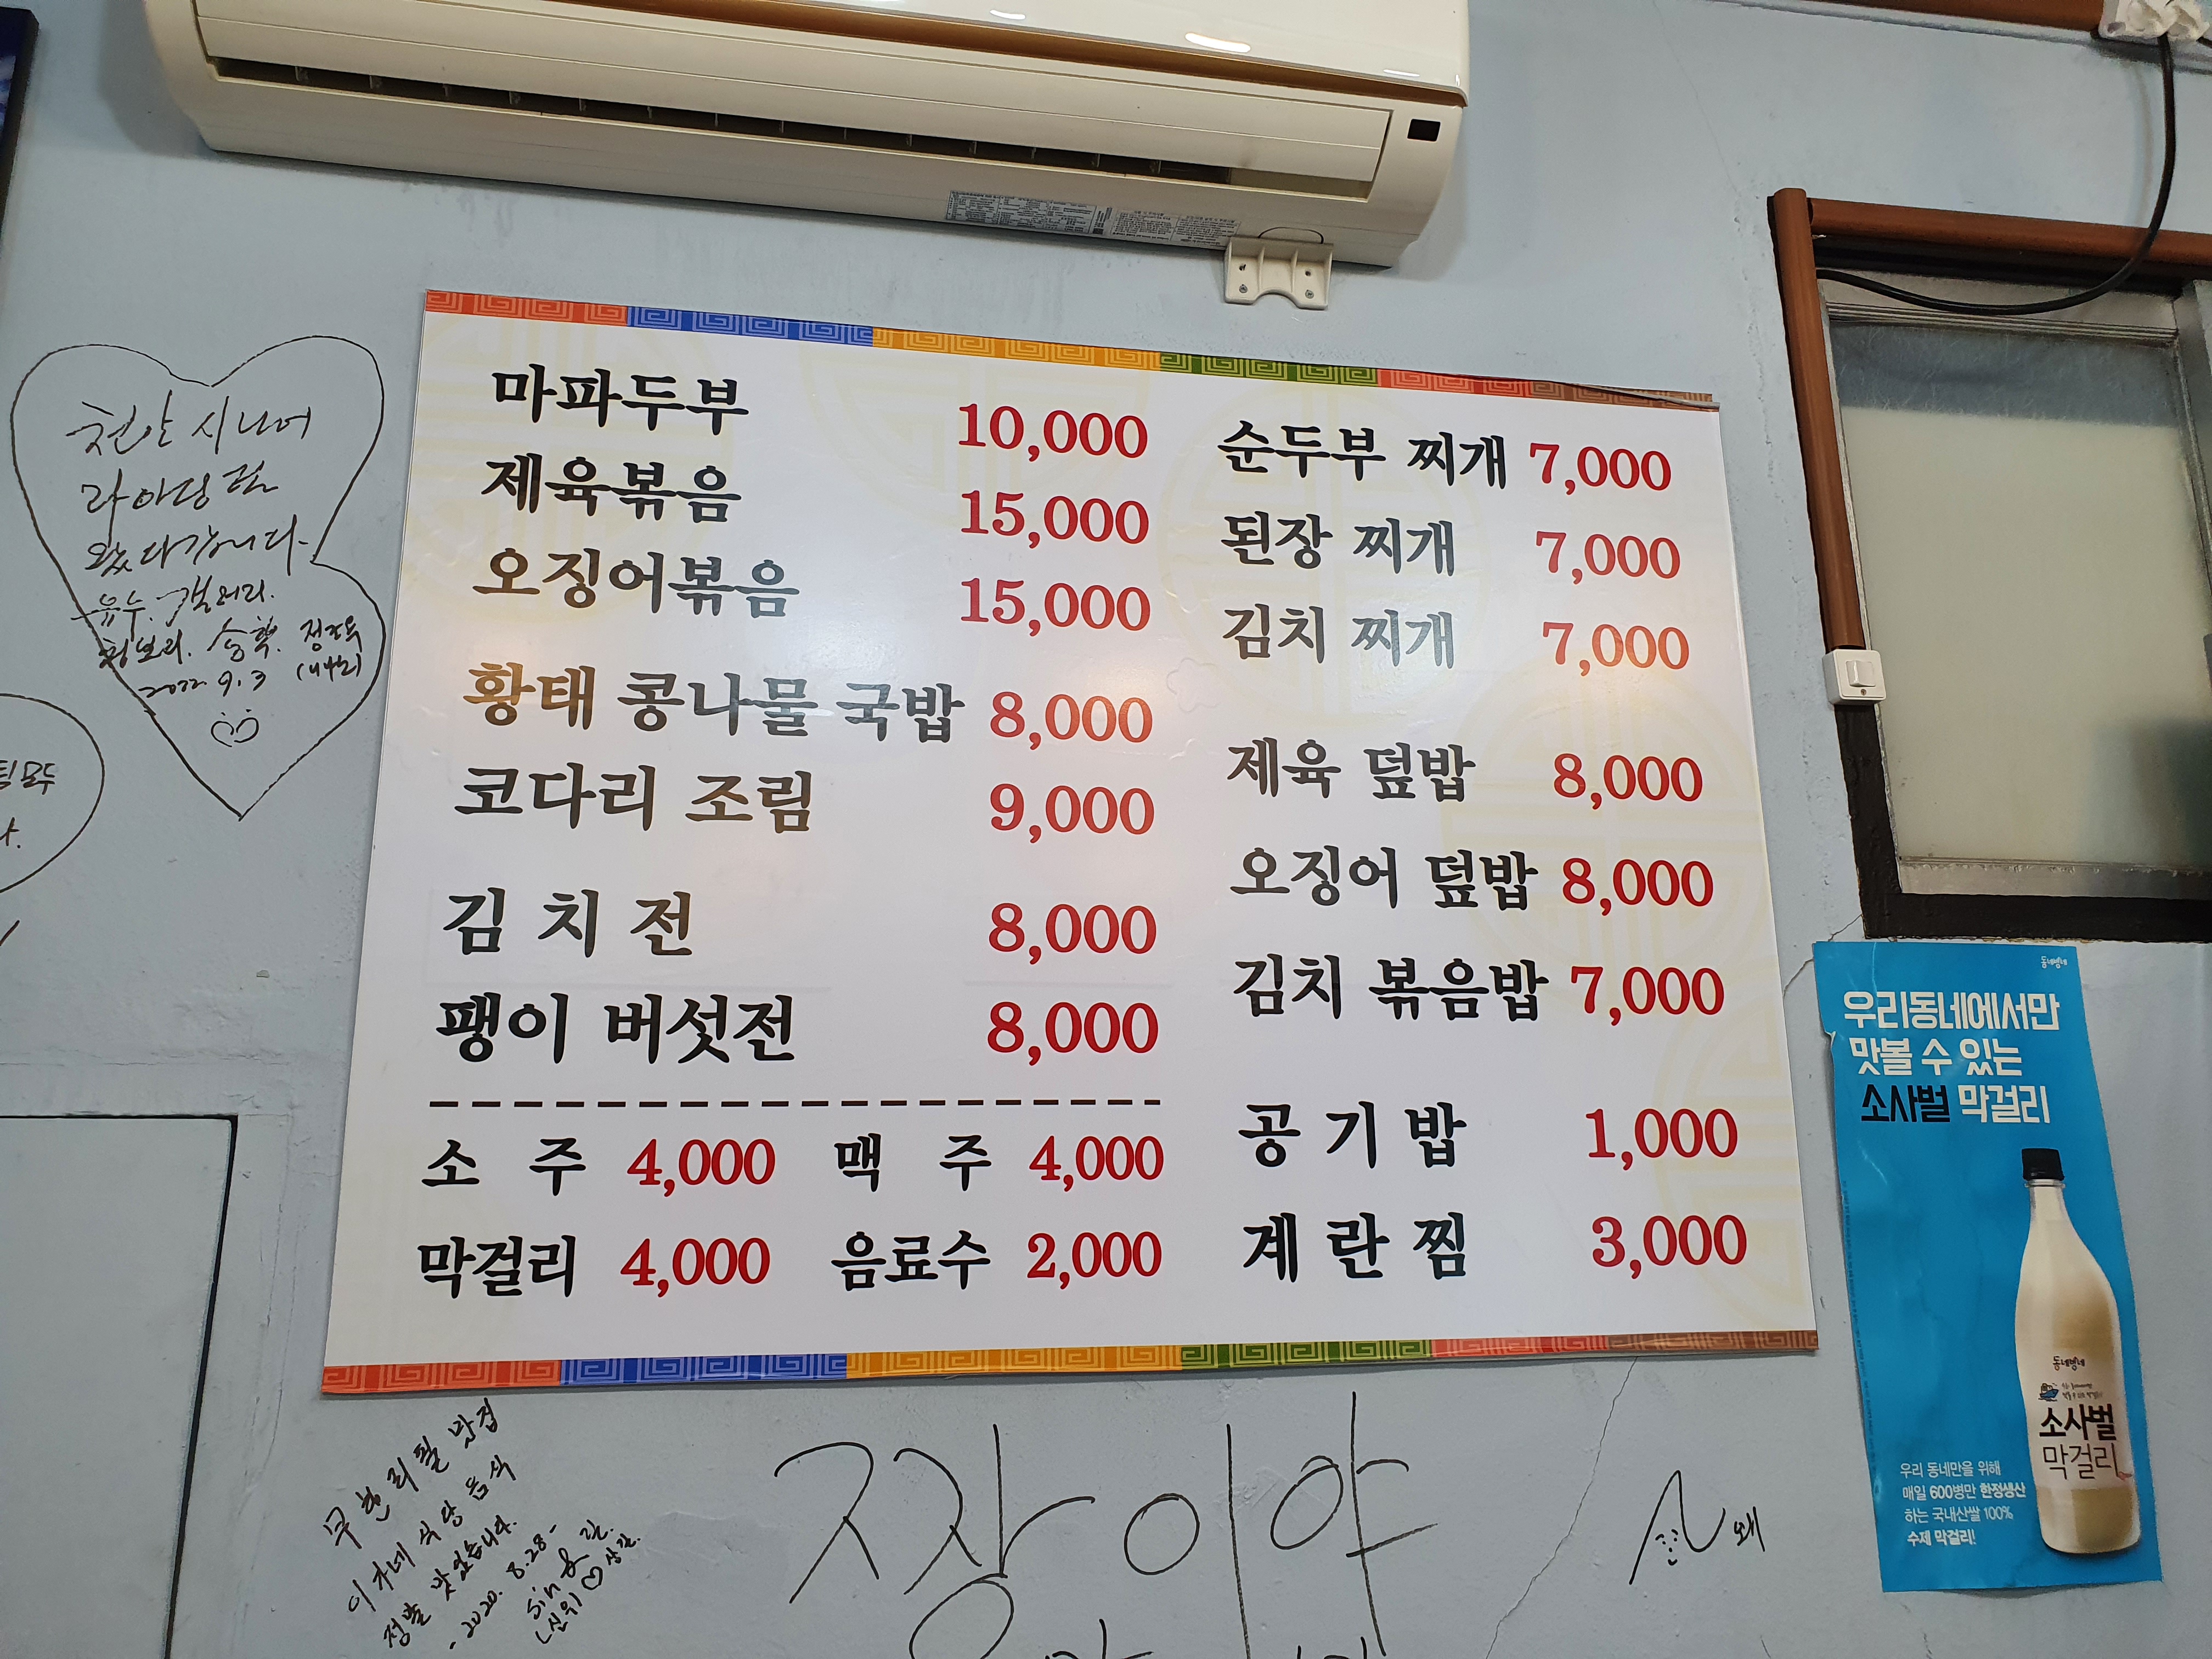 마파두부 10,000
제육볶음 15,000
오징어볶음 15,000
황태 콩나물 국밥 8,000
코다리 조림 9,000
김 치 전 8,000
팽이 버섯전 8,000
소 주 4,000 맥 주 4,000
막걸리 4,000 음료수 2,000
순두부 찌개 7,000
된장 찌개 7,000
김치 찌개 7,000
제육 덮밥 8,000
오징어 덮밥 8,000
김치 볶음밥 7,000
공 기 밥 1,000
계 란 찜 3,000
천안 시니어
라이딩
왔다갑니다.
2022 9.3
무한리필 맛집
식당 음식
정말 맛있습니다.
-2020. 8.28-
동네방네
우리동네에서만
맛볼 수 있는
소사벌 막걸리
동네방네
소사벌
막걸리
우리 동네만을 위해
매일 600병만 한정생산
하는 국내산쌀 100%
수제 막걸리!